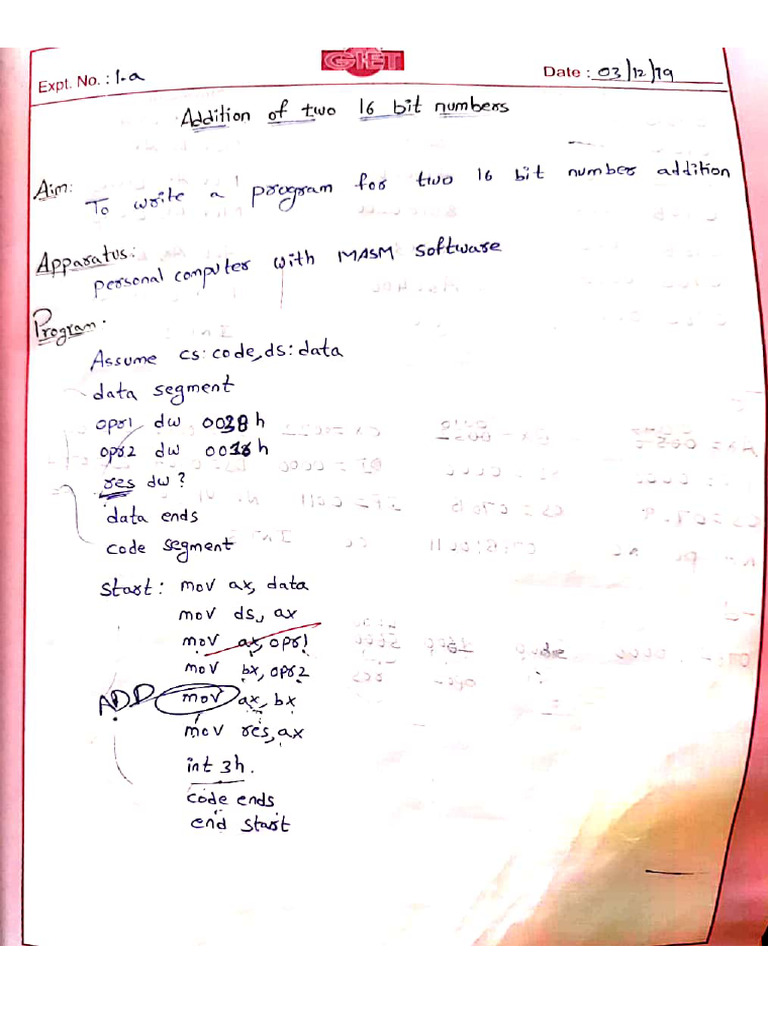 GIET
Expt. No. : 1-a
Date : 03/12/19
Addition of two 16 bit numbers
Aim:
To write a program for two 16 bit number addition
Apparatus:
personal computer with MASM software
Program:
Assume cs:code,ds:data
data segment
opr1 dw 0038h
opr2 dw 0018h
res dw ?
data ends
code segment
start: mov ax, data
mov ds, ax
mov ax, opr1
mov bx, opr2
ADD mov ax, bx
mov res, ax
int 3h.
code ends
end start